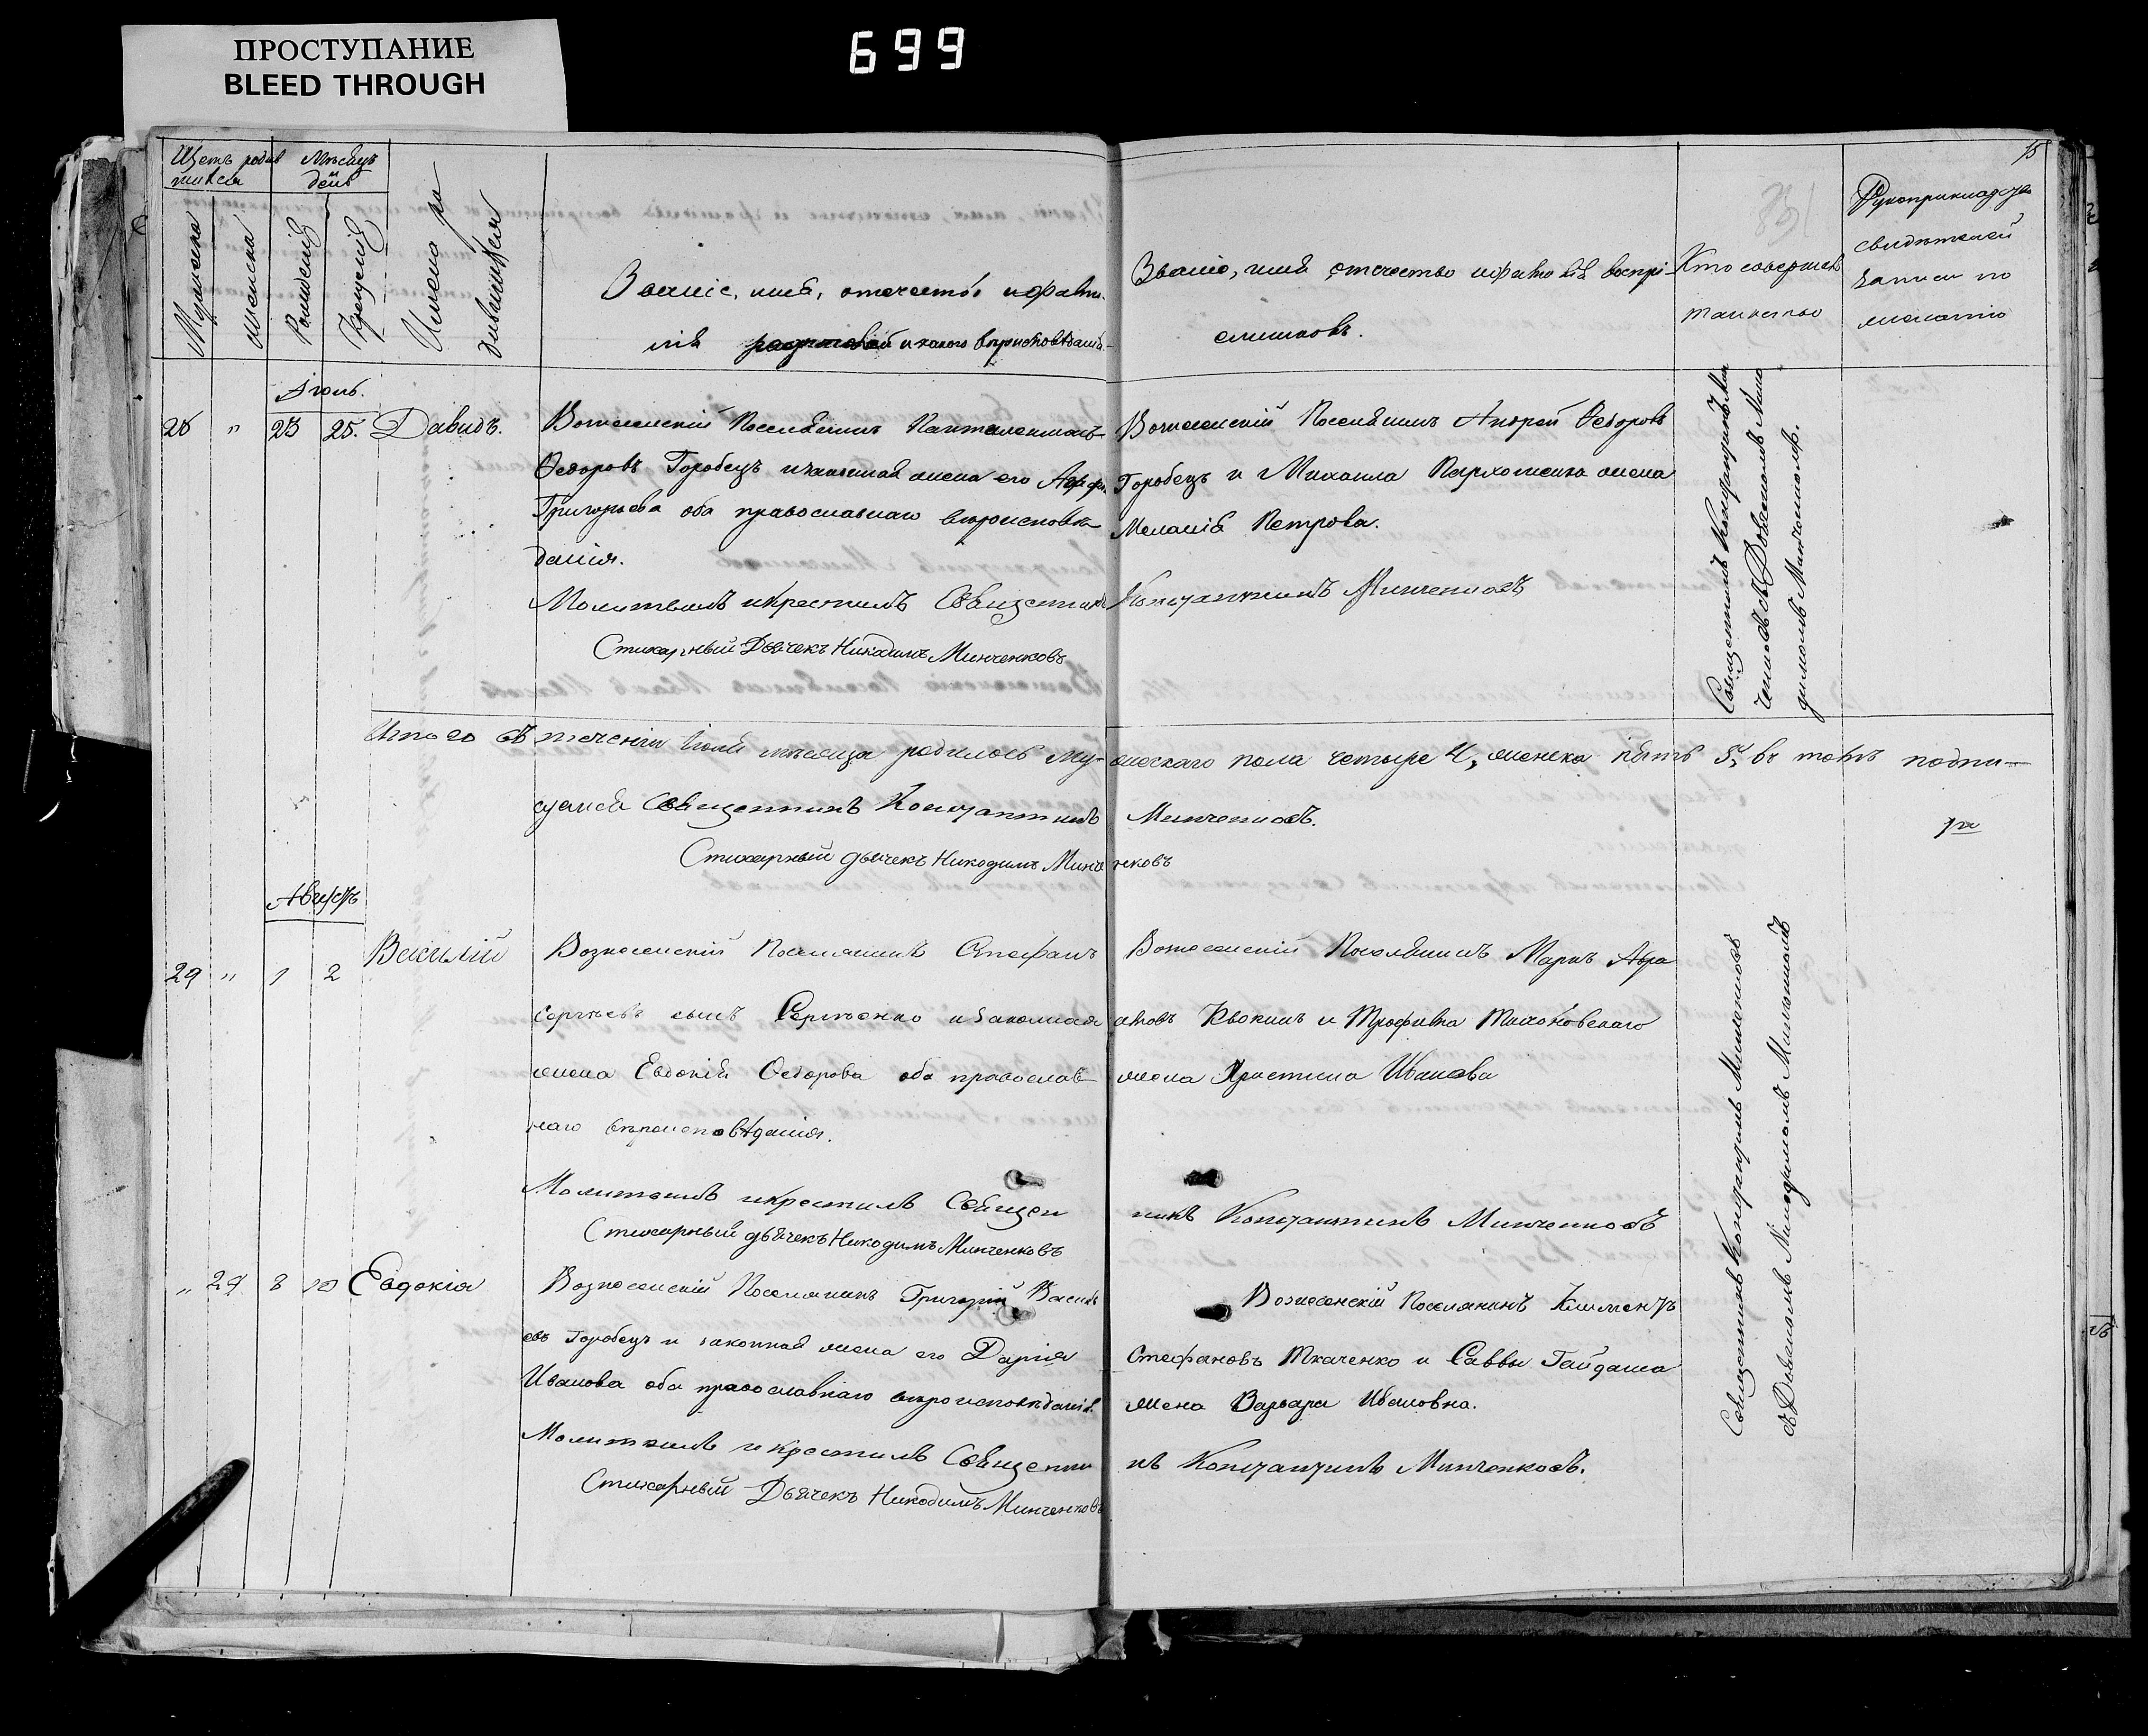 ПРОСТУПАНИЕ
BLEED THROUGH
699
15
Щетъ родив
шихся
Мѣсяцъ
и день
Мужеска
женска
Рожденія
Крещенія
Имена ро
дившихся
Званіе, имя, отечество и фами
лія родителей и какого вѣроисповѣданія
Званіе, имя отечество и фамилія воспрі-
емниковъ.
Кто совершалъ
таинство
Рукоприкладство
свидѣтелей
записи по
желанію
Іюль.
28 " 23 25. Давидъ.
Вознесенскій Поселянинъ Пантелеимонъ
Ѳедоровъ Горобецъ и законная жена его
Григорьева оба православнаго вѣроисповѣ
данія.
Молитвилъ и крестилъ Священникъ
Стихарный Дьячекъ Никодимъ Минченковъ
Вознесенскій Поселянинъ Андрей Ѳедоровъ
Горобецъ и Михаила Пархоменка жена
Меланія Петрова.
Константинъ Минченковъ
Священникъ Константинъ Мин
ченковъ съ Дьячкомъ Нико
димомъ Минченков.
Итого въ теченіи Іюля мѣсяца родилось му-
жескаго пола четыре 4, женска пять 5, въ томъ подпи-
суемся Священникъ Константинъ
Минченковъ.
Стихарный дьячекъ Никодимъ Минче
нковъ
Августъ
29 " 1 2 Василій
Вознесенскій Поселянинъ Стефанъ
Сергѣевъ сынъ Сергѣенко и законная
жена Евдокія Ѳедорова оба православ
наго вѣроисповѣданія.
Молитвилъ и крестилъ Священ
Стихарный дьячекъ Никодимъ Минченковъ
Вознесенскій Поселянинъ Маркъ Авра
амовъ Квокинъ и Трофима
жена Христина Иванова
никъ Константинъ Минченковъ
Священникъ Константинъ Минченковъ
съ Дьячкомъ Никодимомъ Минченковъ
" 29 8 10 Евдокія
Вознесенскій Поселянинъ Григорій Василь
евъ Горобецъ и законная жена его Дарія
Иванова оба православнаго вѣроисповѣданія.
Молитвилъ и крестилъ Священни
Стихарный Дьячекъ Никодимъ Минченковъ
Вознесенскій Поселянинъ Климентъ
Стефановъ Ткаченко и Саввы Гайдаша
жена Варвара Ивановна.
къ Константинъ Минченковъ.